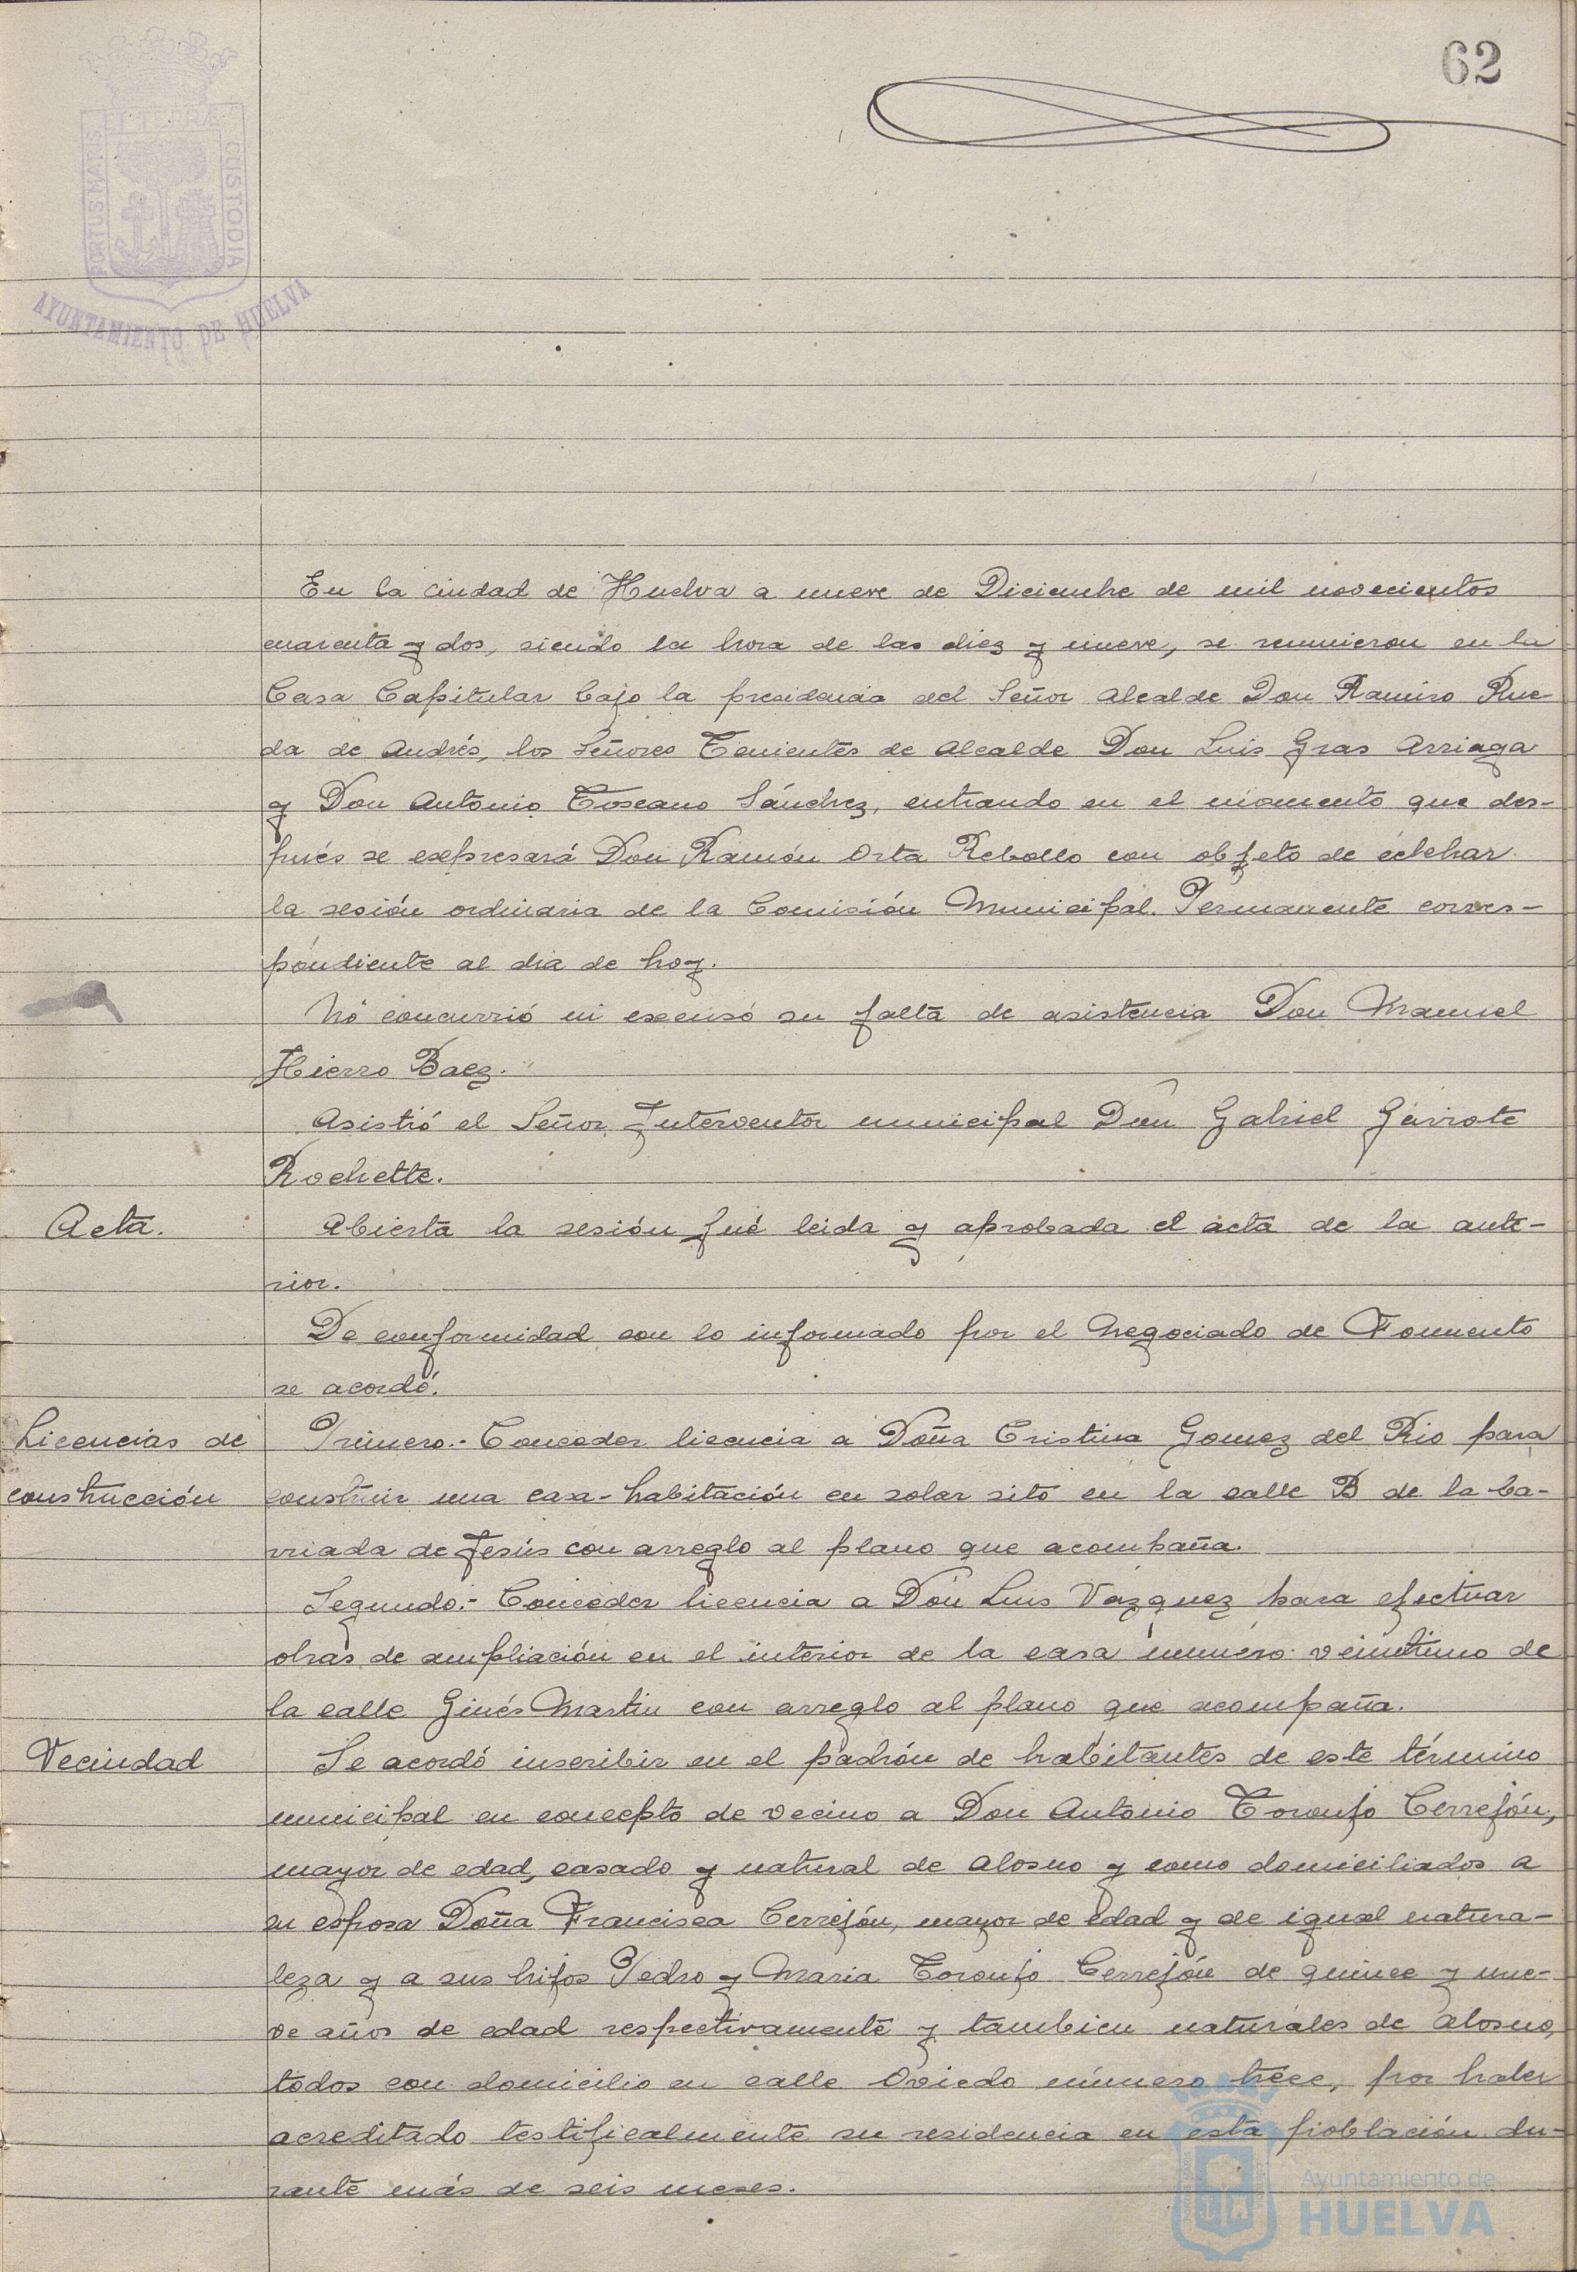 62
PORTUS MARIS ET TERRÆ CUSTODIA
AYUNTAMIENTO DE HUELVA
En la ciudad de Huelva a nueve de Diciembre de mil novecientos
cuarenta y dos, siendo la hora de las diez y nueve, se reunieron en la
Casa Capitular bajo la presidencia del Señor Alcalde Don Ramiro Rue-
da de Andrés, los Señores Tenientes de Alcalde Don Luis Gras Arriaga
y Don Antonio Toscano Sánchez, entrando en el momento que des-
pués se expresará Don Ramón Orta Rebollo con objeto de celebrar
la sesión ordinaria de la Comisión Municipal Permanente corres-
pondiente al dia de hoy.
No concurrió ni excusó su falta de asistencia Don Manuel
Hierro Baez.
Asistió el Señor Interventor municipal Don Gabriel Garrote
Rochette.
Acta.
Abierta la sesión fué leida y aprobada el acta de la ante-
rior.
De conformidad con lo informado por el Negociado de Fomento
se acordó:
Licencias de construcción
Primero.- Conceder licencia a Doña Cristina Gomez del Rio para
construir una casa-habitación en solar sito en la calle B de la ba-
rriada de Jesús con arreglo al plano que acompaña.
Segundo.- Conceder licencia a Don Luis Vázquez para efectuar
obras de ampliación en el interior de la casa número veintiuno de
la calle Ginés Martin con arreglo al plano que acompaña.
Vecindad
Se acordó inscribir en el padrón de habitantes de este término
municipal en concepto de vecino a Don Antonio Toronjo Cerrejón,
mayor de edad, casado y natural de Alosno y como domiciliados a
su esposa Doña Francisca Cerrejón, mayor de edad y de igual natura-
leza y a sus hijos Pedro y Maria Toronjo Cerrejón de quince y nue-
ve años de edad respectivamente y tambien naturales de Alosno,
todos con domicilio en calle Oviedo número trece, por haber
acreditado testificalmente su residencia en esta población du-
rante más de seis meses.
Ayuntamiento de
HUELVA